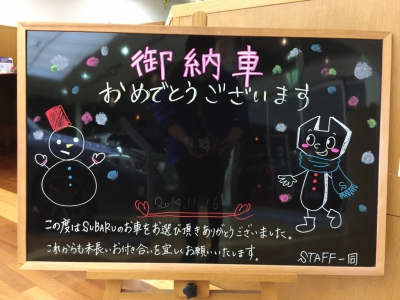 御納車
おめでとうございます
この度はSUBARUのお車をお選び頂きありがとうございました。
これからも末長いお付き合いを宜しくお願いいたします。
STAFF一同